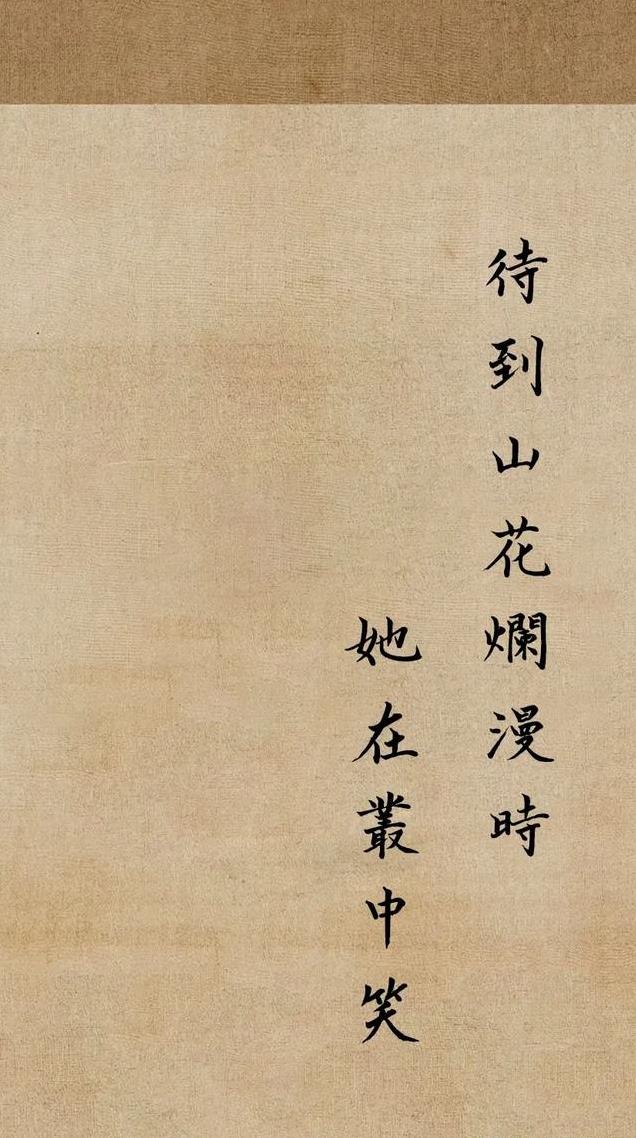 待到山花爛漫時
她在叢中笑